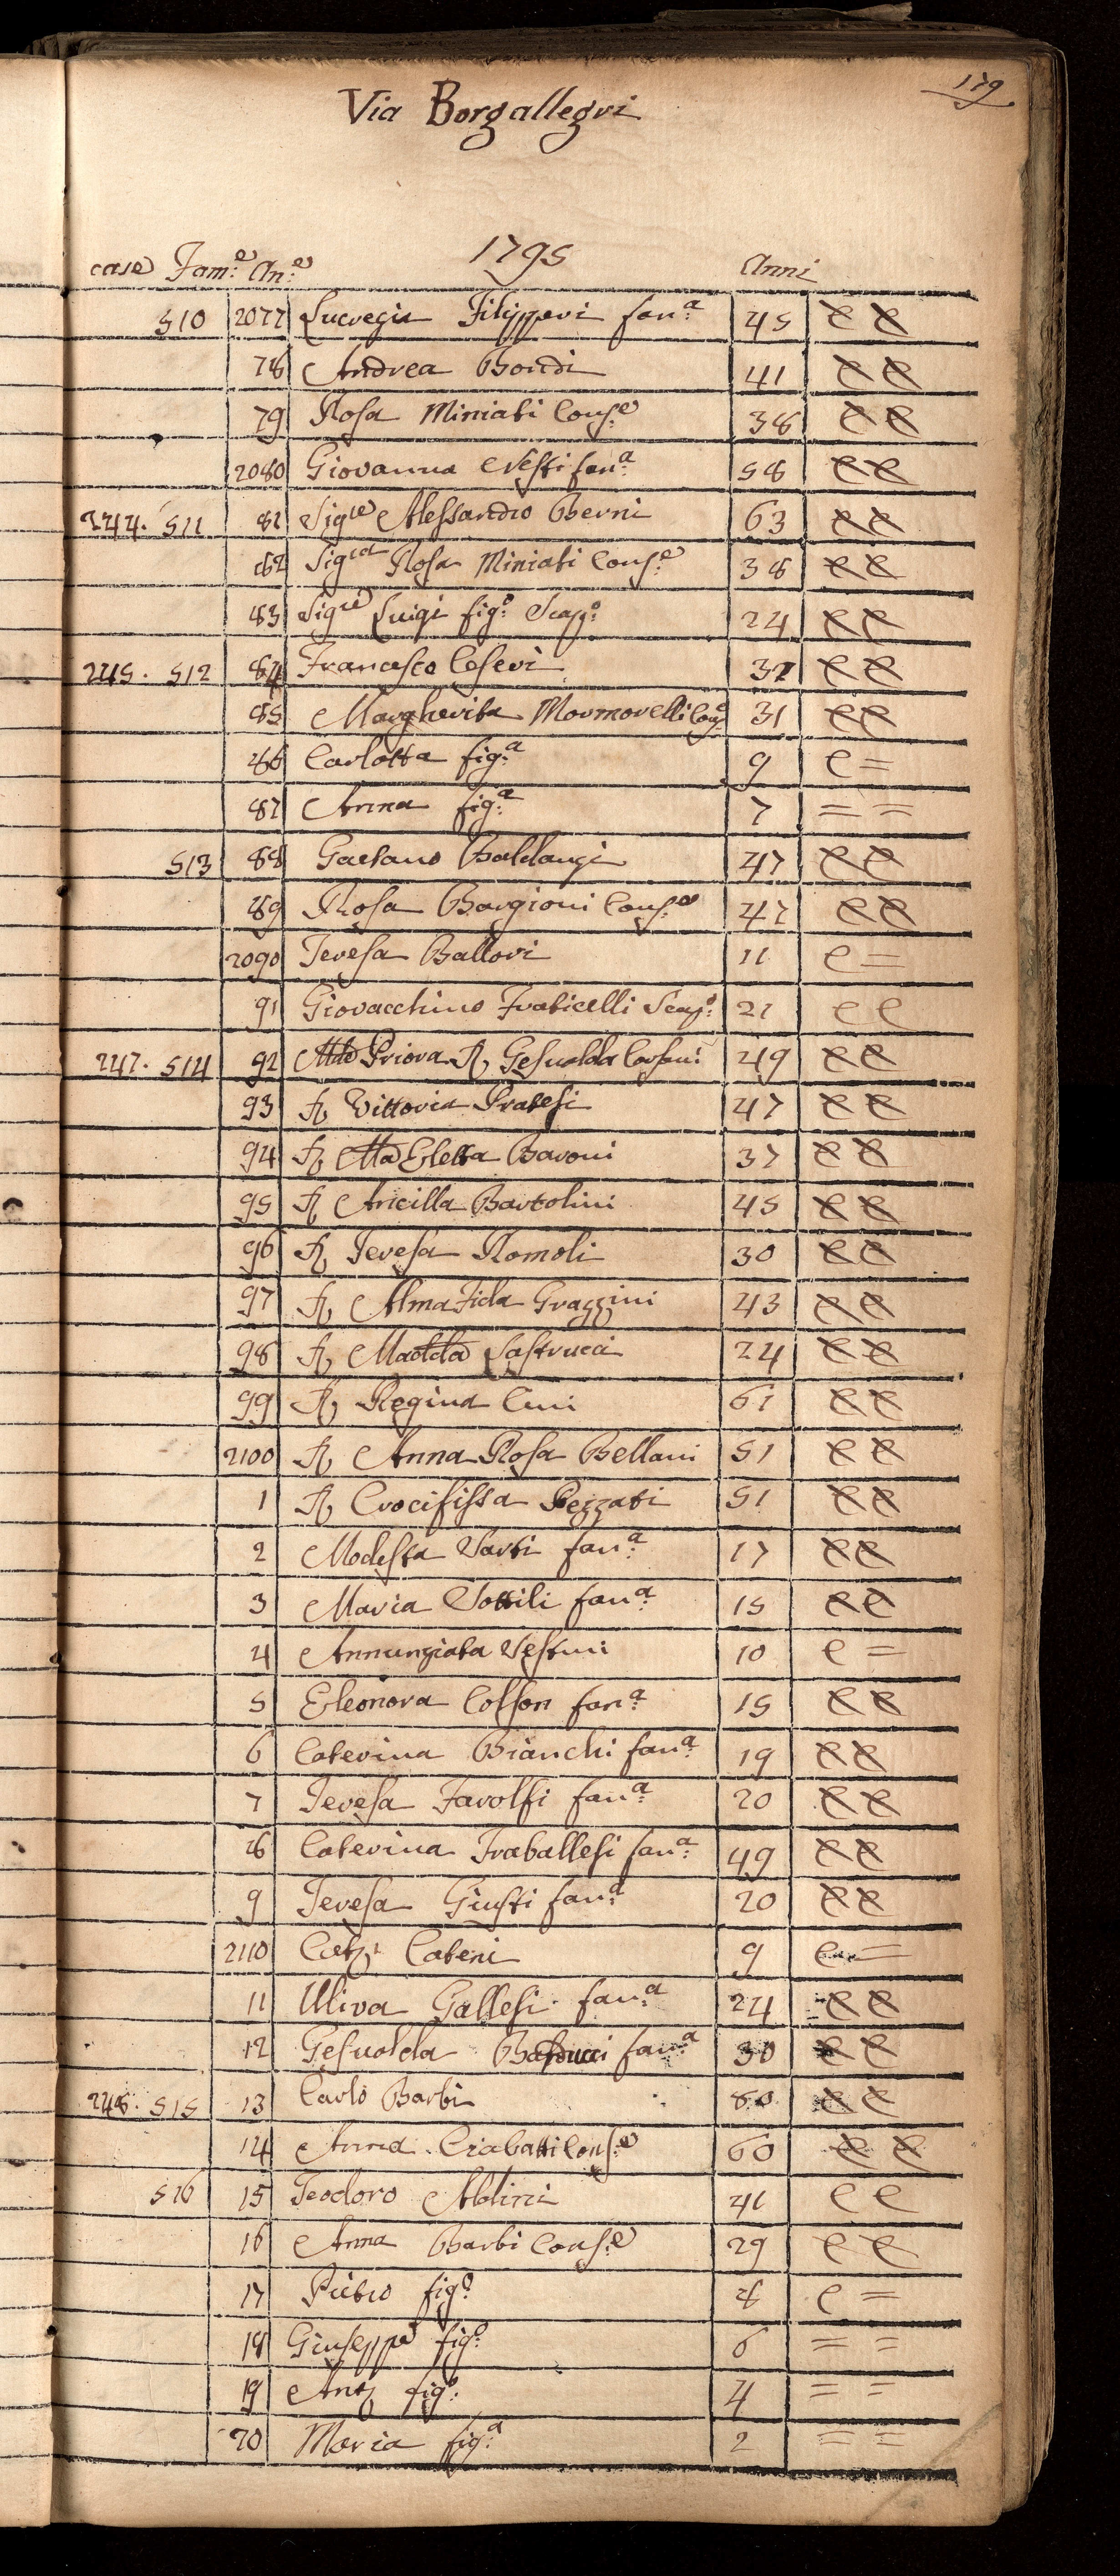 179
Via Borgallegri
1795
case Fam:e An:e Anni
510 2077 Lucrezia Filipperi fan:a 45 e e
78 Andrea Bondi 41 e e
79 Rosa Miniati Cons:e 38 e e
2080 Giovanna Nesti fan:a 58 e e
244. 511 81 Sigre Alessandro Berni 63 e e
82 Sigra Rosa Miniati Cons:e 38 e e
83 Sigre Luigi fig:o Scap:o 24 e e
245. 512 84 Francesco Ceseri 37 e e
85 Margherita Mormorelli Cons:e 31 e e
86 Carlotta fig:a 9 e =
87 Anna fig:a 7 = =
513 88 Gaetano Baldanzi 47 e e
89 Rosa Bargioni Cons:e 47 e e
2090 Teresa Ballori 11 e =
91 Giovacchino Fraticelli Scap:o 21 e e
247. 514 92 Priora Gesualda 49 e e
93 Vittoria Pratesi 47 e e
94 Eletta Baroni 37 e e
95 Ancilla Bartolini 45 e e
96 Teresa Romoli 30 e e
97 Alma Fida Grazzini 43 e e
98 Lastrucci 24 e e
99 Regina Ceni 61 e e
2100 Anna Rosa Bellani 51 e e
1 Crocifissa Pezzati 51 e e
2 Modesta Sarti fan:a 17 e e
3 Maria Sottili fan:a 15 e e
4 Annunziata Vestrini 10 e =
5 Eleonora Colson fan:a 15 e e
6 Caterina Bianchi fan:a 19 e e
7 Teresa Favolfi fan:a 20 e e
8 Caterina Traballesi fan:a 49 e e
9 Teresa Giusti fan:a 20 e e
2110 Cateni 9 e =
11 Uliva Gallesi fan:a 24 e e
12 Gesualda fan:a 30 e e
248. 515 13 Carlo Barbi 80 e e
14 Anna Ciabatti Cons:e 60 e e
516 15 Teodoro Aldini 41 e e
16 Anna Barbi Cons:e 29 e e
17 Pietro fig:o 8 e =
18 Giuseppe fig:o 6 = =
19 Ant:o fig:o 4 = =
20 Maria fig:a 2 = =